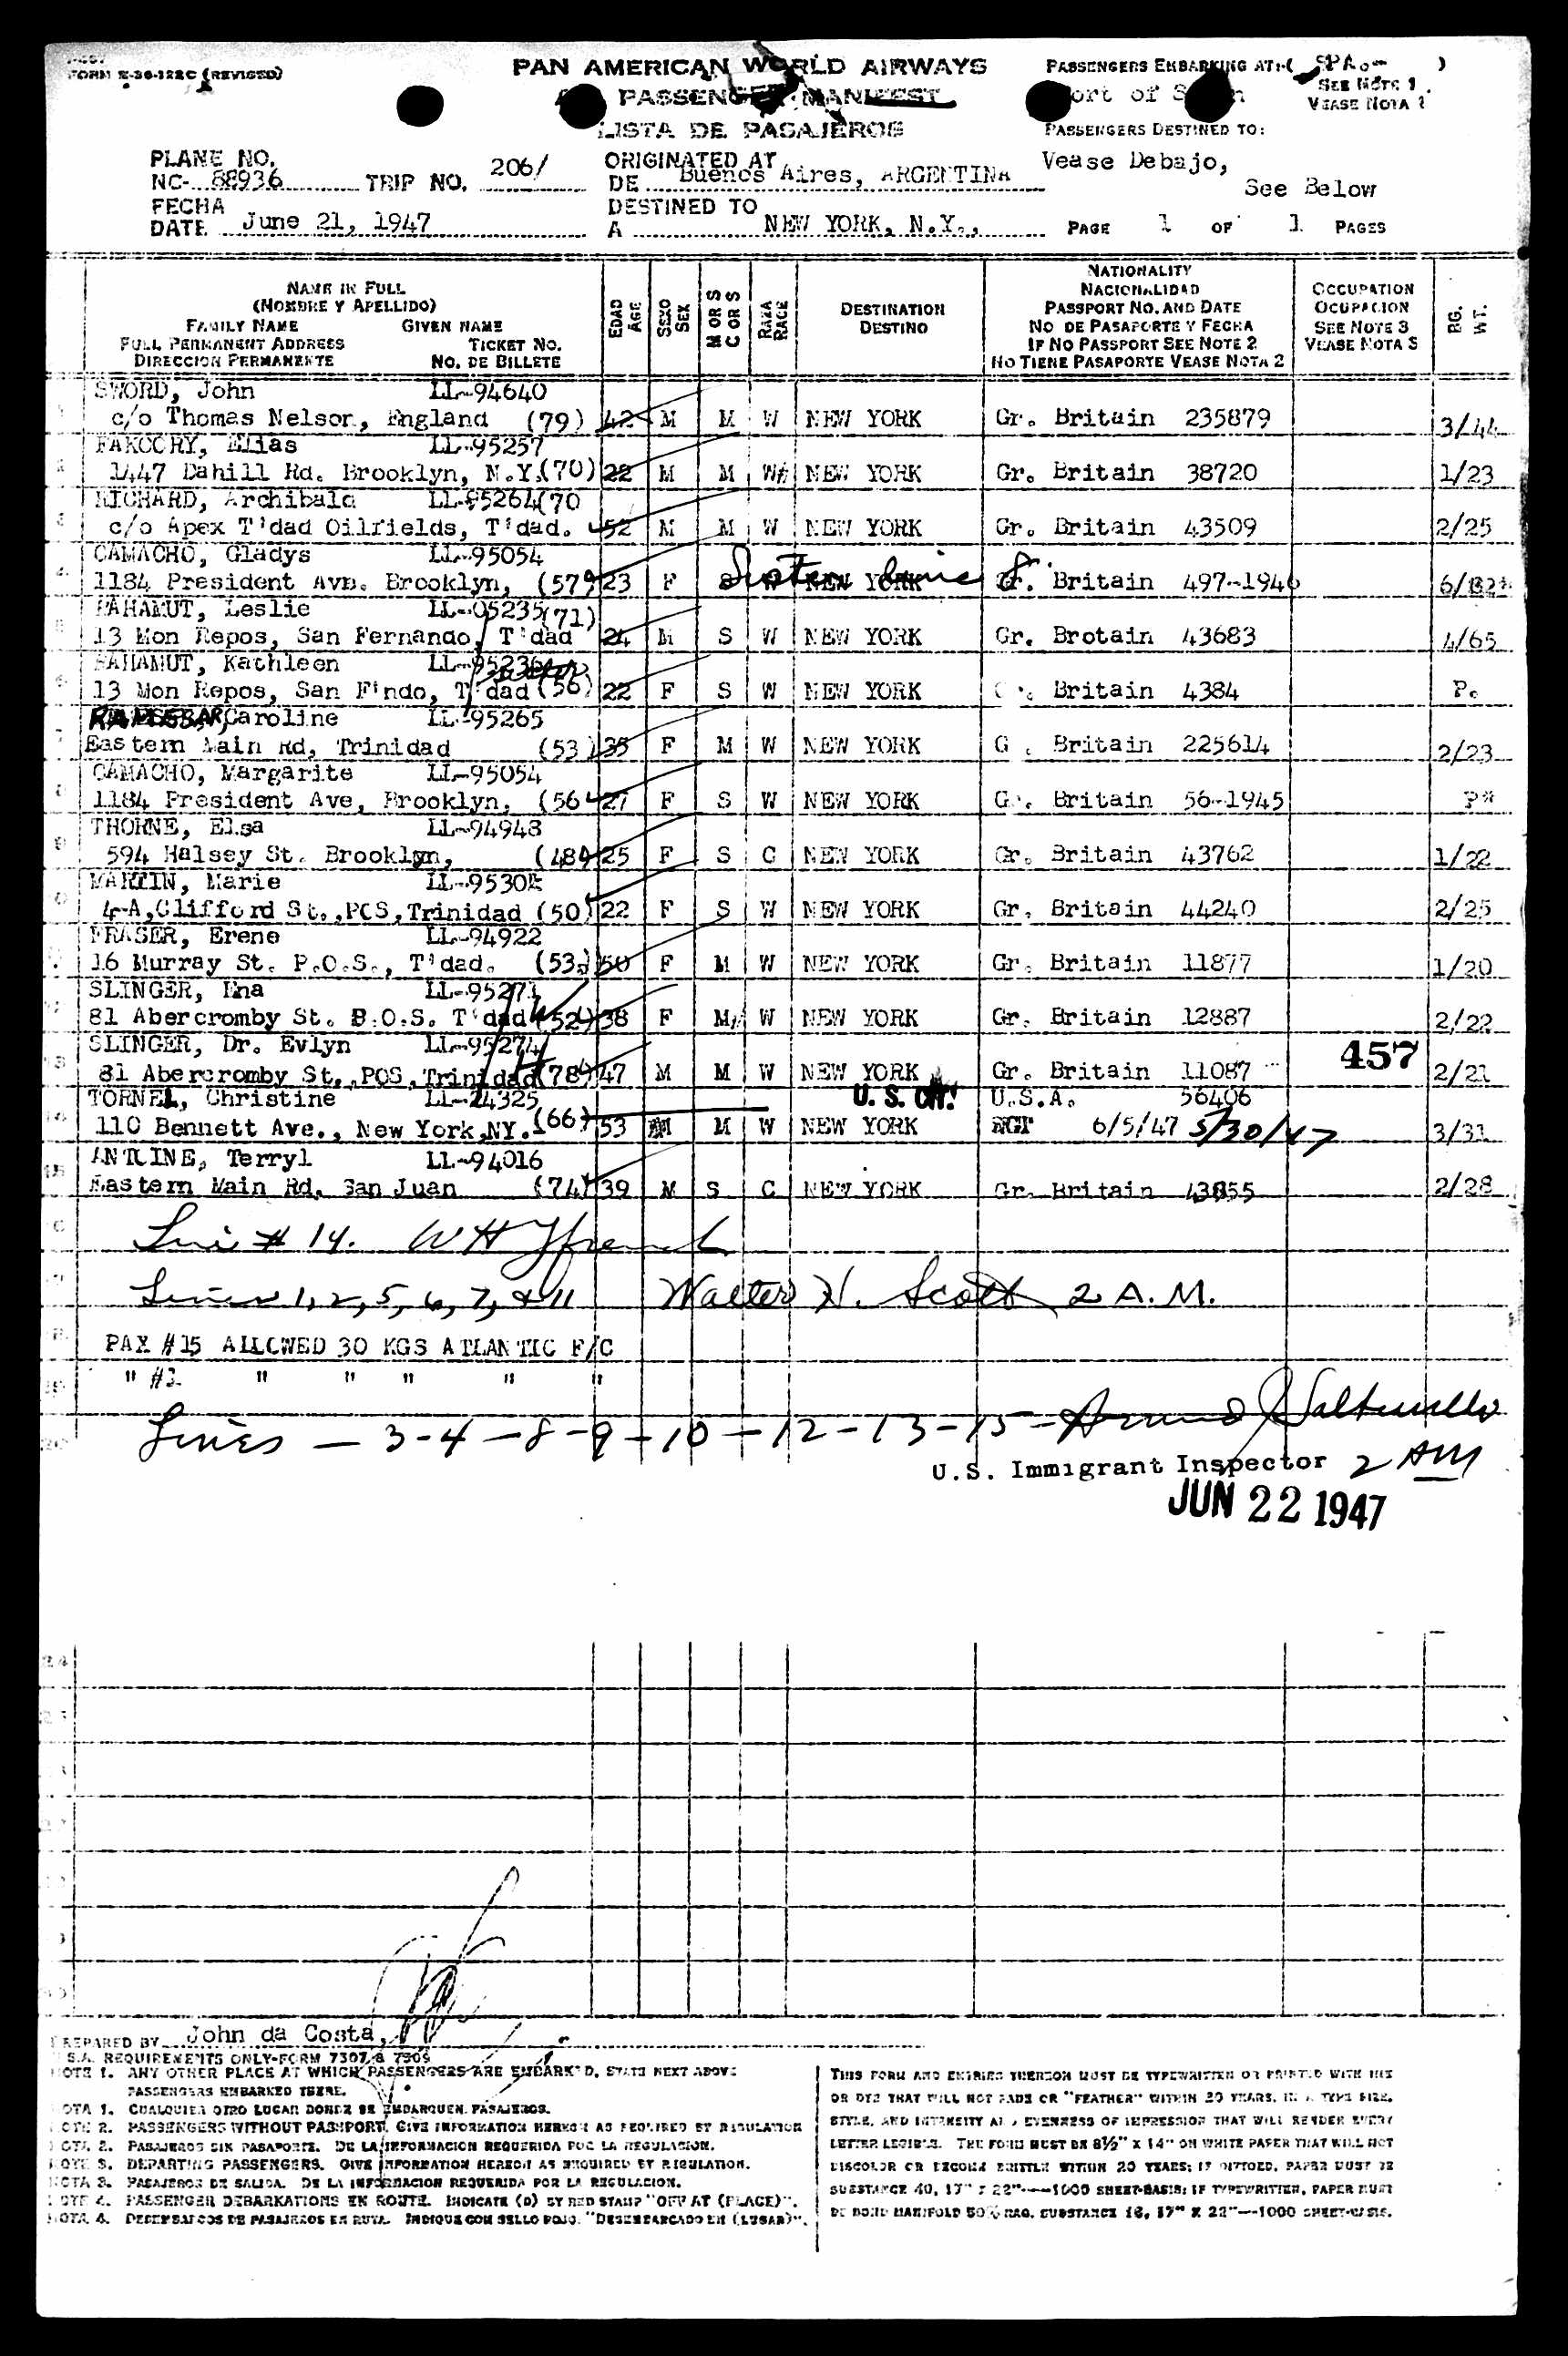 FORM E-36-122C (REVISED)
PAN AMERICAN WORLD AIRWAYS
PASSENGER MANIFEST
LISTA DE PASAJEROS
PASSENGERS EMBARKING AT:-( SPA.- )
SEE NOTE 1
VEASE NOTA 1
Port of Spain
PASSENGERS DESTINED TO:
Vease Debajo,
See Below
PLANE NO.
NC- 88936 TRIP NO. 206/
ORIGINATED AT
DE Buenos Aires, ARGENTINA
FECHA
DATE June 21, 1947
DESTINED TO
A NEW YORK, N.Y.,
PAGE 1 OF 1 PAGES
NAME IN FULL
(NOMBRE Y APELLIDO)
FAMILY NAME GIVEN NAME
FULL PERMANENT ADDRESS TICKET NO.
DIRECCION PERMANENTE NO. DE BILLETE
EDAD AGE
SEXO SEX
M OR S C OR S
RAZA RACE
DESTINATION
DESTINO
NATIONALITY
NACIONALIDAD
PASSPORT NO. AND DATE
NO DE PASAPORTE Y FECHA
IF NO PASSPORT SEE NOTE 2
NO TIENE PASAPORTE VEASE NOTA 2
OCCUPATION
OCUPACION
SEE NOTE 3
VEASE NOTA 3
BG. WT.
SWORD, John LL-94640
c/o Thomas Nelson, England (79) 42 M M W NEW YORK Gr. Britain 235879 3/44
FAKOORY, Elias LL-95257
1447 Dahill Rd. Brooklyn, N.Y.(70) 22 M M W NEW YORK Gr. Britain 38720 1/23
RICHARD, Archibald LL-95264(70
c/o Apex T'dad Oilfields, T'dad. 52 M M W NEW YORK Gr. Britain 43509 2/25
CAMACHO, Gladys LL-95054
1184 President Ave. Brooklyn, (57) 23 F S W NEW YORK Gr. Britain 497-1946 6/82*
Sister line 8
RAHAMUT, Leslie LL-95235(71)
13 Mon Repos, San Fernando, T'dad 24 M S W NEW YORK Gr. Brotain 43683 4/65
RAHAMUT, Kathleen LL-95236
13 Mon Repos, San F'ndo, T'dad (56) 22 F S W NEW YORK Gr. Britain 4384 P.
RAMSBAR, Caroline LL-95265
Eastern Main Rd, Trinidad (53) 35 F M W NEW YORK G . Britain 225614 2/23
CAMACHO, Margarite LL-95054
1184 President Ave, Brooklyn, (56 27 F S W NEW YORK Gr. Britain 56-1945 P*
THORNE, Elsa LL-94948
594 Halsey St. Brooklyn, (48) 25 F S C NEW YORK Gr. Britain 43762 1/22
MARTIN, Marie LL-95304
4-A, Clifford St.,POS,Trinidad (50) 22 F S W NEW YORK Gr. Britain 44240 2/25
FRASER, Erene LL-94922
16 Murray St. P.O.S., T'dad. (53) 50 F M W NEW YORK Gr. Britain 11877 1/20
SLINGER, Ena LL-95271
81 Abercromby St. P.O.S. T'dad (52) 38 F M W NEW YORK Gr. Britain 12887 2/22
SLINGER, Dr. Evlyn LL-95274
81 Abercromby St.,POS,Trinidad (78) 47 M M W NEW YORK Gr. Britain 11087 457 2/21
TORNEL, Christine LL-24325 U. S. CIT. U.S.A. 56406
110 Bennett Ave., New York,NY. (66) 53 M W NEW YORK 6/5/47 5/30/47 3/31
ANTOINE, Terryl LL-94016
Eastern Main Rd. San Juan (74) 39 M S C NEW YORK Gr. Britain 43855 2/28
Line # 14. W H French
Lines 1, 2, 5, 6, 7, & 11 Walter H. Scott 2 A.M.
PAX #15 ALLOWED 30 KGS ATLANTIC F/C
" #1 " " " " "
Lines — 3-4-8-9-10-12-13-15-
U.S. Immigrant Inspector 2 AM
JUN 22 1947
PREPARED BY John da Costa,
U.S.A. REQUIREMENTS ONLY-FORM 7307 & 7509
NOTE 1. ANY OTHER PLACE AT WHICH PASSENGERS ARE EMBARK'D, STATE NEXT ABOVE
PASSENGERS EMBARKED THERE.
NOTA 1. CUALQUIER OTRO LUGAR DONDE SE EMBARQUEN PASAJEROS.
NOTE 2. PASSENGERS WITHOUT PASSPORT. GIVE INFORMATION HEREON AS REQUIRED BY REGULATION
NOTA 2. PASAJEROS SIN PASAPORTE. DE LA INFORMACION REQUERIDA POR LA REGULACION.
NOTE 3. DEPARTING PASSENGERS. GIVE INFORMATION HEREON AS REQUIRED BY REGULATION.
NOTA 3. PASAJEROS DE SALIDA. DE LA INFORMACION REQUERIDA POR LA REGULACION.
NOTE 4. PASSENGER DEBARKATIONS EN ROUTE. INDICATE (D) BY RED STAMP "OFF AT (PLACE)".
NOTA 4. DESEMBARCOS DE PASAJEROS EN RUTA. INDIQUE CON SELLO ROJO. "DESEMBARCADO EN (LUGAR)".
THIS FORM AND ENTRIES THEREON MUST BE TYPEWRITTEN OR PRINTED WITH INK
OR DYE THAT WILL NOT FADE OR "FEATHER" WITHIN 20 YEARS, IN A TYPE SIZE,
STYLE, AND INTENSITY AND EVENNESS OF IMPRESSION THAT WILL RENDER EVERY
LETTER LEGIBLE. THE FORM MUST BE 8½" X 14" ON WHITE PAPER THAT WILL NOT
DISCOLOR OR BECOME BRITTLE WITHIN 20 YEARS; IF DITTOED, PAPER MUST BE
SUBSTANCE 40, 17" X 22"—1000 SHEET-BASIS; IF TYPEWRITTEN, PAPER MUST
BE BOND MANIFOLD 50% RAG, SUBSTANCE 16, 17" X 22"—1000 SHEET-BASIS.